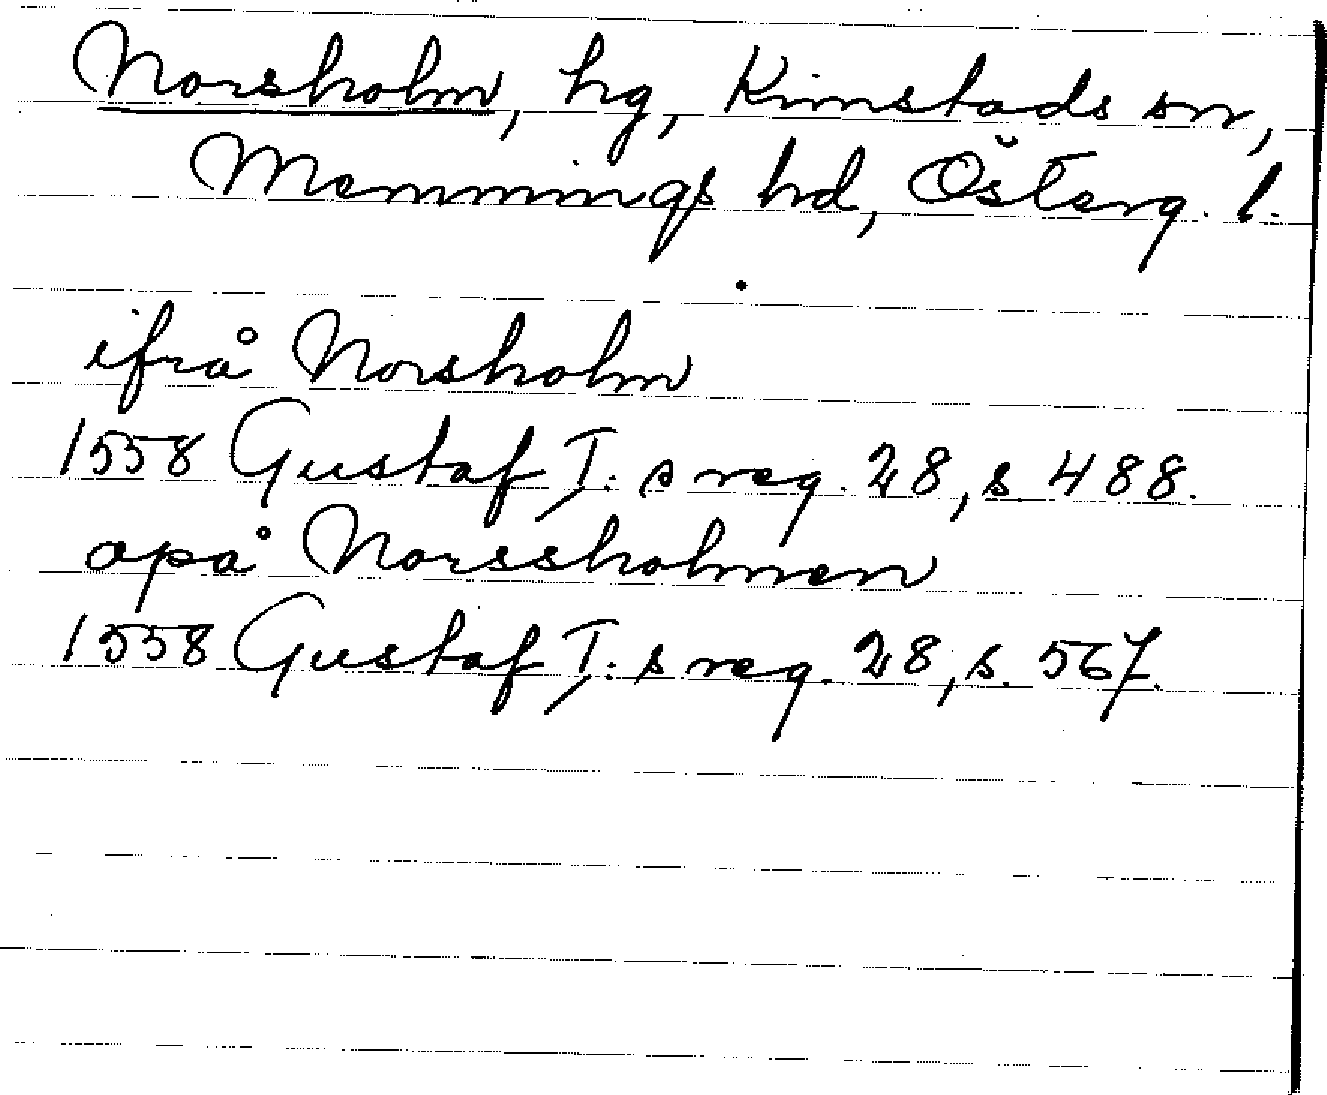 Norsholm, hg, Kimstads sn,
Memmings hd, Österg. l.
ifrå Norsholm
1558 Gustaf I:s reg. 28, s. 488.
opå Norssholmen
1558 Gustaf I:s reg. 28, s. 567.